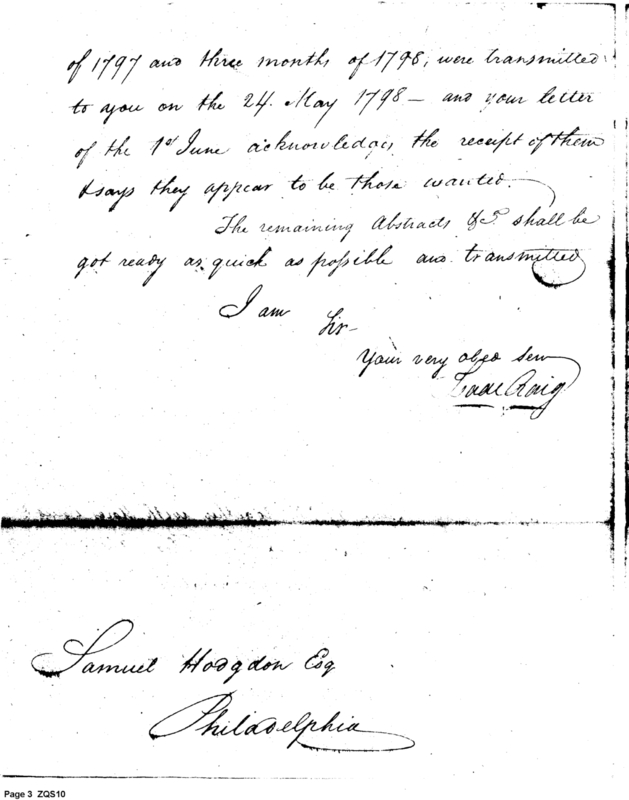 of 1797 and three months of 1798, were transmitted
to you on the 24. May 1798 — and your letter
of the 1st June acknowledges the receipt of them
& says they appear to be those wanted.
The remaining Abstracts &c. shall be
got ready as quick as possible and transmitted
I am
Sir —
Your very obed serv
Isaac Craig
Samuel Hodgdon Esq
Philadelphia
Page 3 ZQS10